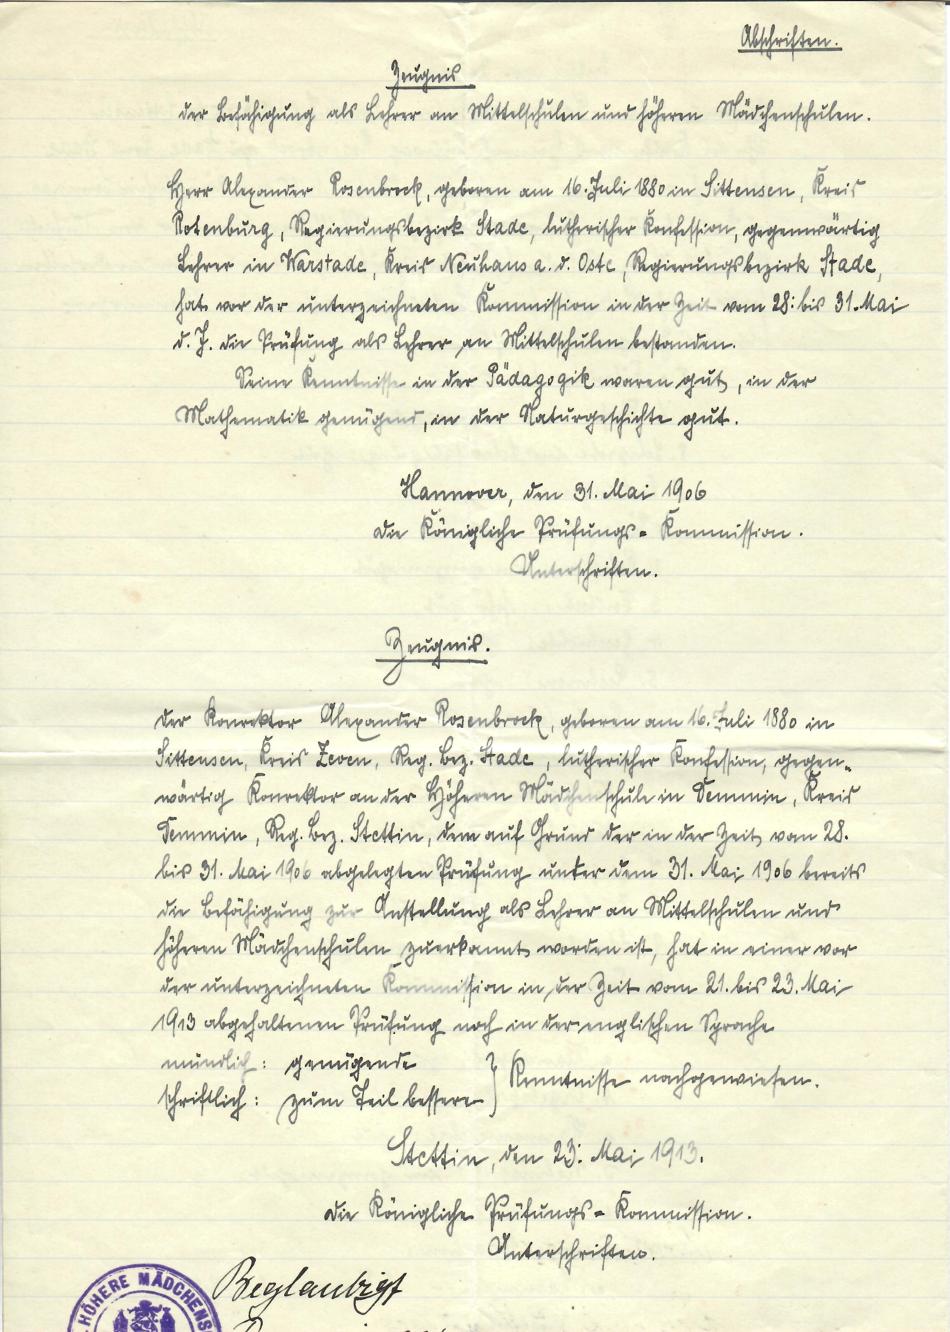 Abschriften.
Zeugnis
der Befähigung als Lehrer an Mittelschulen und höheren Mädchenschulen.
Herr Alexander Rosenbrock, geboren am 16. Juli 1880 in Sittensen, Kreis
Rotenburg, Regierungsbezirk Stade, lutherischer Konfession, gegenwärtig
Lehrer in Warstade, Kreis Neuhaus a. d. Oste, Regierungsbezirk Stade,
hat vor der unterzeichneten Kommission in der Zeit vom 28. bis 31. Mai
d. J. die Prüfung als Lehrer an Mittelschulen bestanden.
Seine Kenntnisse in der Pädagogik waren gut, in der
Mathematik genügend, in der Naturgeschichte gut.
Hannover, den 31. Mai 1906
die Königliche Prüfungs-Kommission.
Unterschriften.
Zeugnis.
der Konrektor Alexander Rosenbrock, geboren am 16. Juli 1880 in
Sittensen, Kreis Zeven, Reg. Bez. Stade, lutherischer Konfession, gegen-
wärtig Konrektor an der Höheren Mädchenschule in Demmin, Kreis
Demmin, Reg. Bez. Stettin, dem auf Grund der in der Zeit vom 28.
bis 31. Mai 1906 abgelegten Prüfung unter dem 31. Mai 1906 bereits
die Befähigung zur Anstellung als Lehrer an Mittelschulen und
höheren Mädchenschulen zuerkannt worden ist, hat in einer vor
der unterzeichneten Kommission in der Zeit vom 21. bis 23. Mai
1913 abgehaltenen Prüfung noch in der englischen Sprache
mündlich: genügende
schriftlich: zum Teil bessere } Kenntnisse nachgewiesen.
Stettin, den 23. Mai 1913.
die Königliche Prüfungs-Kommission.
Unterschriften.
Beglaubigt
HÖHERE MÄDCHENS